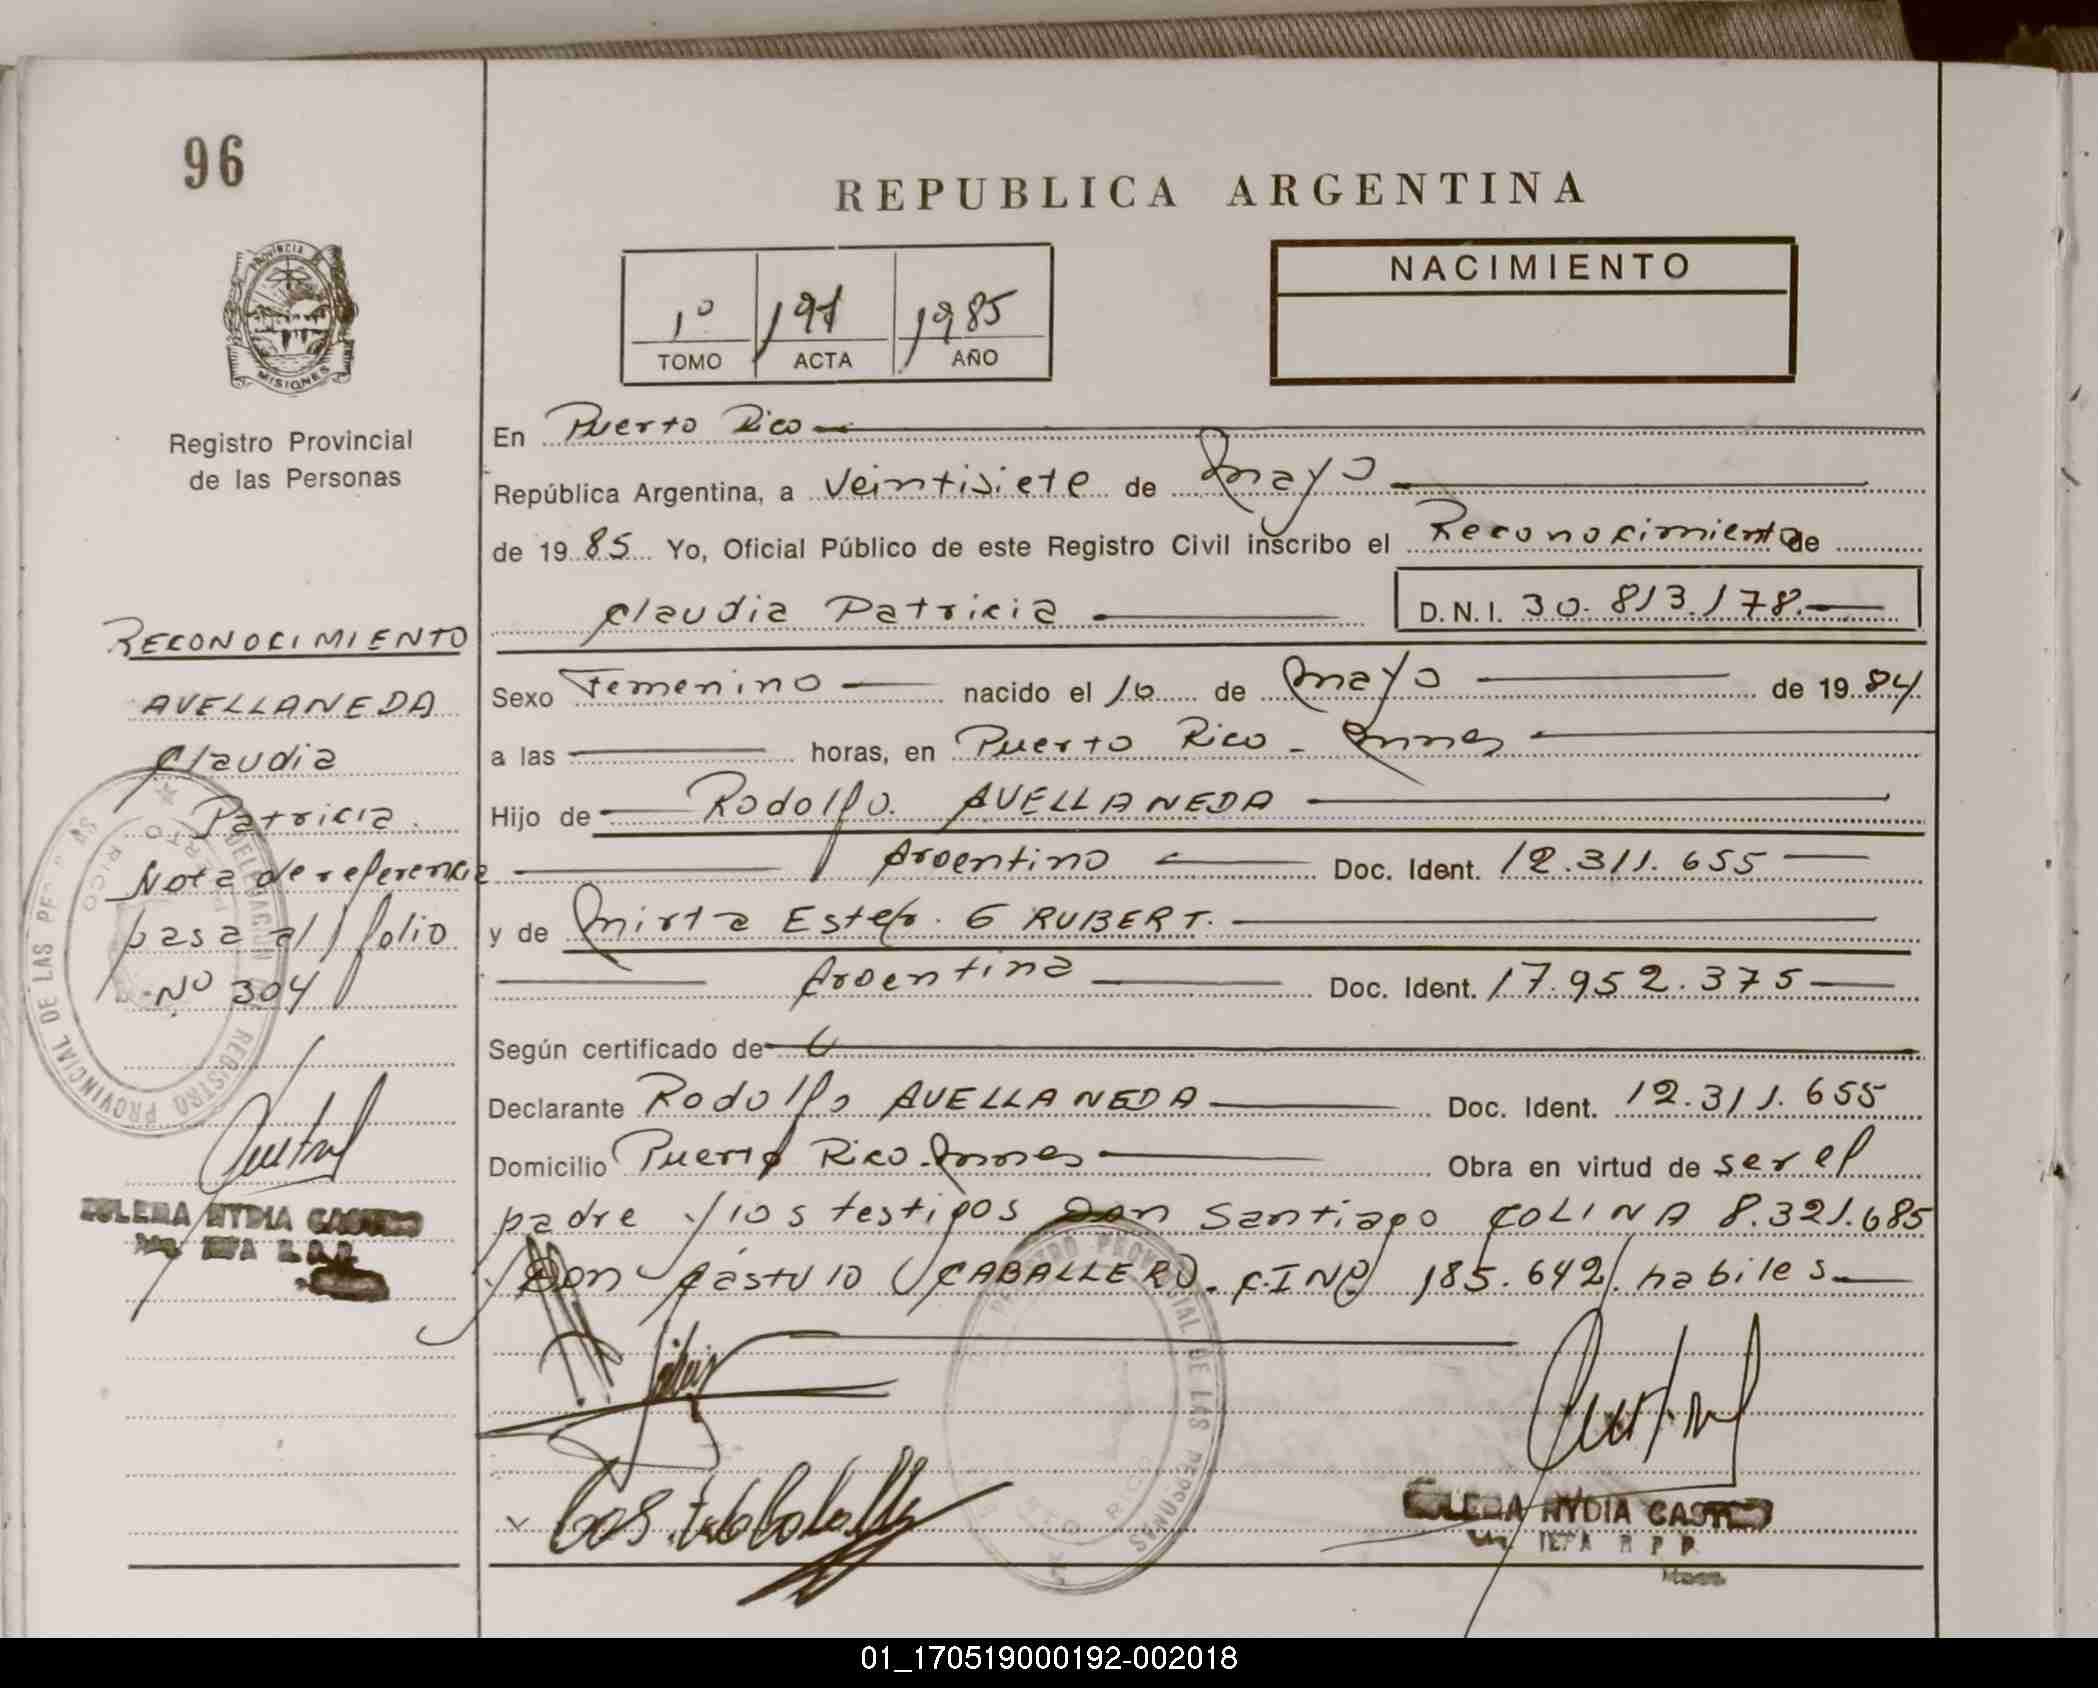 96
REPUBLICA ARGENTINA
PROVINCIA
MISIONES
Registro Provincial
de las Personas
NACIMIENTO
1º 191 1985
TOMO ACTA AÑO
En Puerto Rico
República Argentina, a veintisiete de mayo
de 1985 Yo, Oficial Público de este Registro Civil inscribo el Reconocimiento de
Claudia Patricia D.N.I. 30.813.178.
Sexo Femenino nacido el 10 de mayo de 1984
a las horas, en Puerto Rico - Mnes
Hijo de Rodolfo AVELLANEDA
Argentino Doc. Ident. 12.311.655
y de Mirta Ester G RUBERT.
Argentina Doc. Ident. 17.952.375
Según certificado de
Declarante Rodolfo AVELLANEDA Doc. Ident. 12.311.655
Domicilio Puerto Rico. Mnes Obra en virtud de ser el
padre y los testigos Don Santiago COLINA 8.321.685
y Don Cástulo CABALLERO. C.I Nº 185.642 habiles
RECONOCIMIENTO
AVELLANEDA
Claudia
Patricia.
Nota de referencia
pasa al folio
Nº 304
DELEGACION REGISTRO PROVINCIAL DE LAS
PUERTO RICO
NYDIA
REGISTRO PROVINCIAL DE LAS PERSONAS
NYDIA
01_170519000192-002018